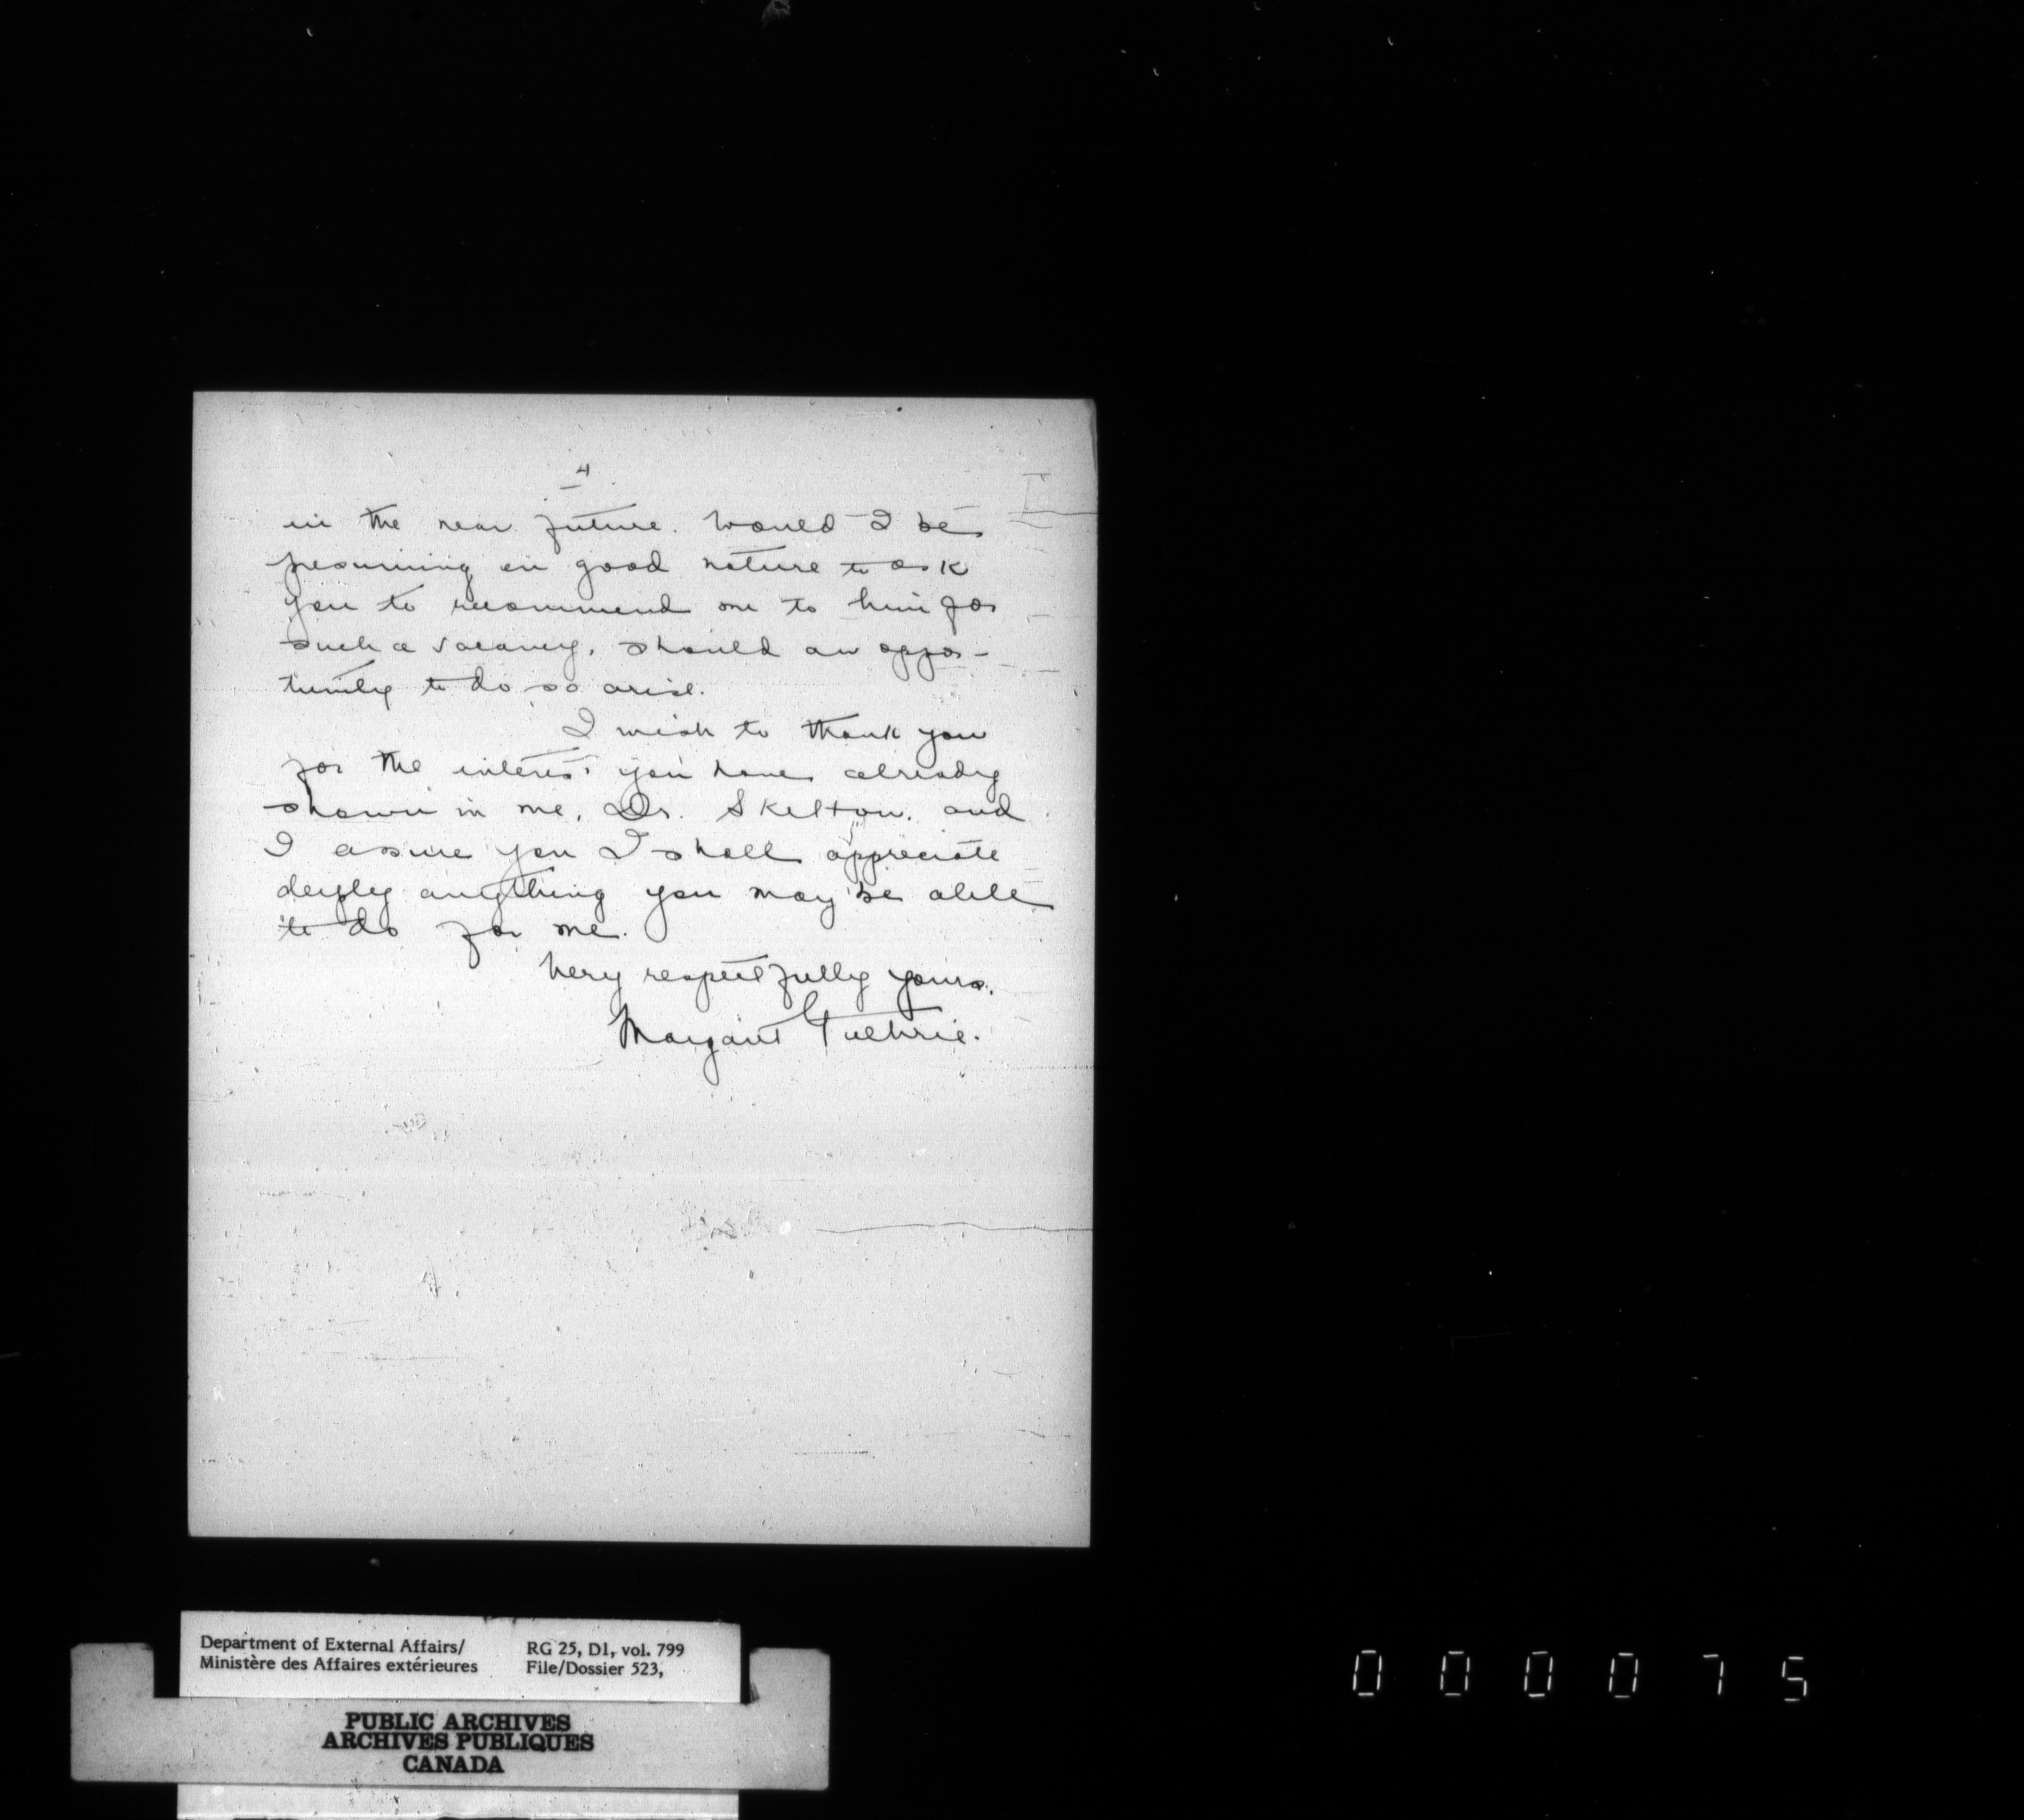 4
in the near future. Would I be
presuming on good nature to ask
you to recommend me to him for
such a vacancy, should an oppor-
tunity to do so arise.
I wish to thank you
for the interest you have already
shown in me, Dr. Skelton, and
I assure you I shall appreciate
deeply anything you may be able
to do for me.
Very respectfully yours,
Margaret Guthrie.
Department of External Affairs/ RG 25, D1, vol. 799
Ministère des Affaires extérieures File/Dossier 523,
PUBLIC ARCHIVES
ARCHIVES PUBLIQUES
CANADA
000075